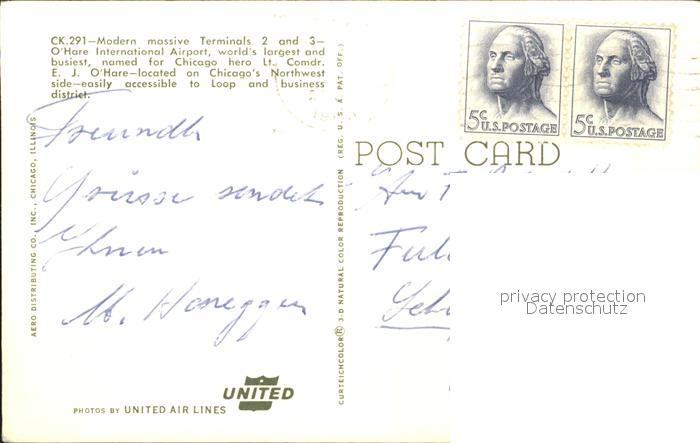 CK.291—Modern massive Terminals 2 and 3—
O'Hare International Airport, world's largest and
busiest, named for Chicago hero Lt. Comdr.
E. J. O'Hare—located on Chicago's Northwest
side—easily accessible to Loop and business
district.
5c U.S.POSTAGE
5c U.S.POSTAGE
POST CARD
AERO DISTRIBUTING CO. INC., CHICAGO, ILLINOIS
Freundl.
Grüsse sendet
Ihnen
M. Honegger
CURTEICHCOLOR® 3-D NATURAL COLOR REPRODUCTION (REG. U. S. A. PAT. OFF.)
privacy protection
Datenschutz
UNITED
PHOTOS BY UNITED AIR LINES